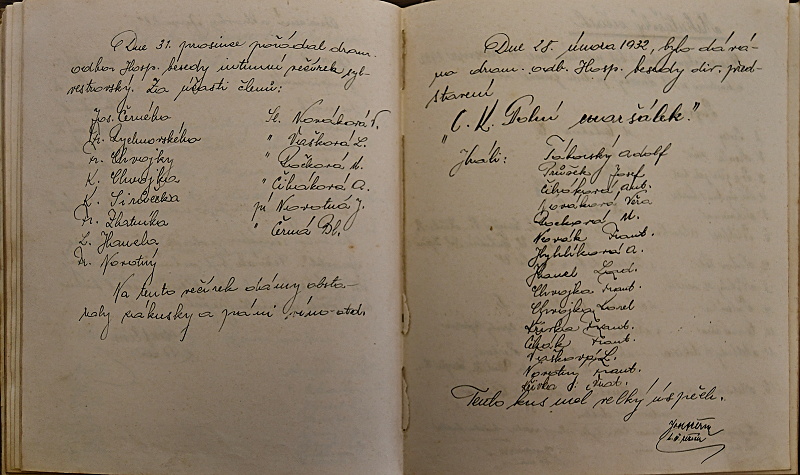 Dne 31. prosince pořádal dram.
odbor Hosp. besedy intimní večírek syl-
vestrovský. Za účasti členů:
Jos. Černého
Fr. Rychnovského
Fr. Chvojky
K. Chvojka
K. Sirůvečka
Fr. Zbatníka
L.
Fr. Novotný
Sl. Nováková V.
" Vašková L.
" Kočková M.
" Čiháková A.
pí Novotná J.
" Černá Bl.
Na tento večírek dámy obsta-
raly zákusky a páni víno atd.
Dne 28. února 1932, bylo dává-
no dram. odb. Hosp. besedy div. před-
stavení
"C. K. Polní maršálek."
Hráli:
Táborský Adolf
Průšek Josef
Čiháková Ant.
Nováková Věra
M.
Novák Frant.
A.
Hanel Lad.
Chvojka Frant.
Chvojka Karel
Křivka Frant.
Čihák Frant.
Vašková L.
Novotný Frant.
Křivka
Tento kus měl velký úspěch.